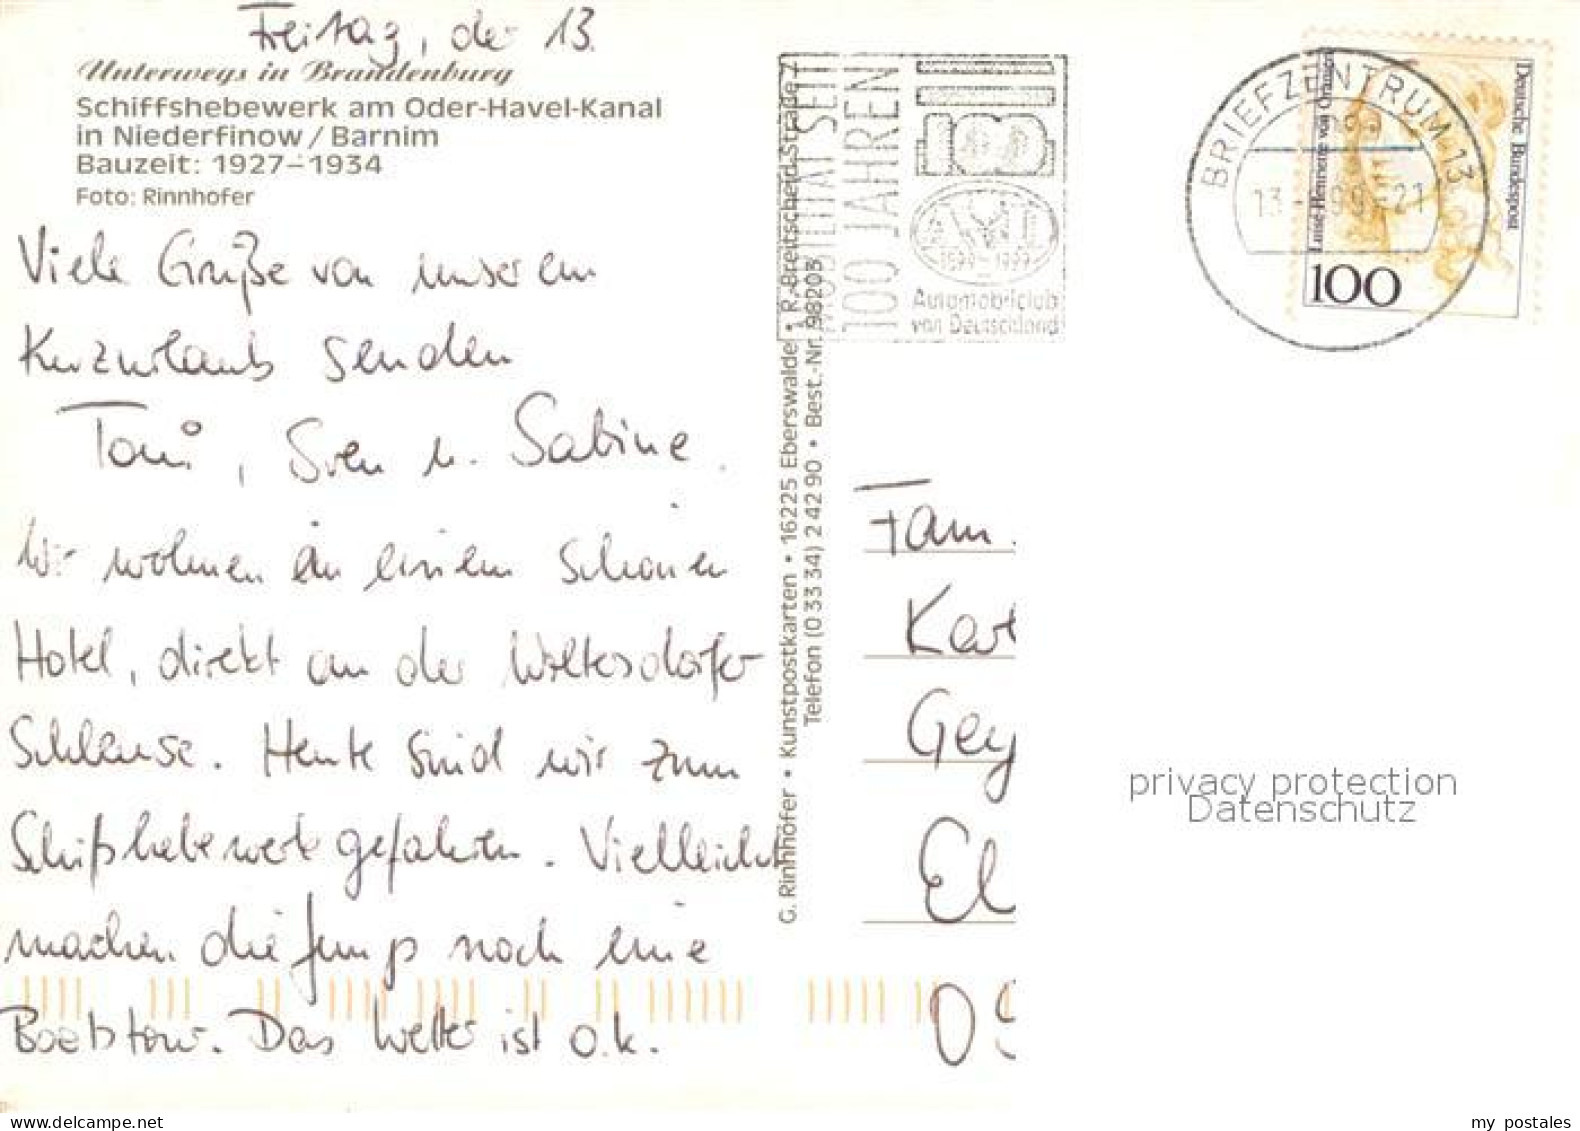 Freitag, der 13.
Unterwegs in Brandenburg
Schiffshebewerk am Oder-Havel-Kanal
in Niederfinow / Barnim
Bauzeit: 1927–1934
Foto: Rinnhofer
Viele Grüße von unserem
Kurzurlaub senden
Toni, Sven u. Sabine.
Wir wohnen in einem schönen
Hotel, direkt an der Woltersdorfer
Schleuse. Heute sind wir zum
Schiffshebewerk gefahren. Vielleicht
machen die Jungs noch eine
Bootstour. Das Wetter ist o.k.
G. Rinnhofer • Kunstpostkarten • 16225 Eberswalde • R.-Breitscheid-Straße 7
Telefon (0 33 34) 2 42 90 • Best.-Nr. 98203
MOBILITÄT SEIT
100 JAHREN
AvD
1899–1999
Automobilclub
von Deutschland
BRIEFZENTRUM 13
13. 99-21
Deutsche Bundespost
Luise Henriette von Oranien
100
Fam.
Kar
Gey
El
09
privacy protection
Datenschutz
my postales